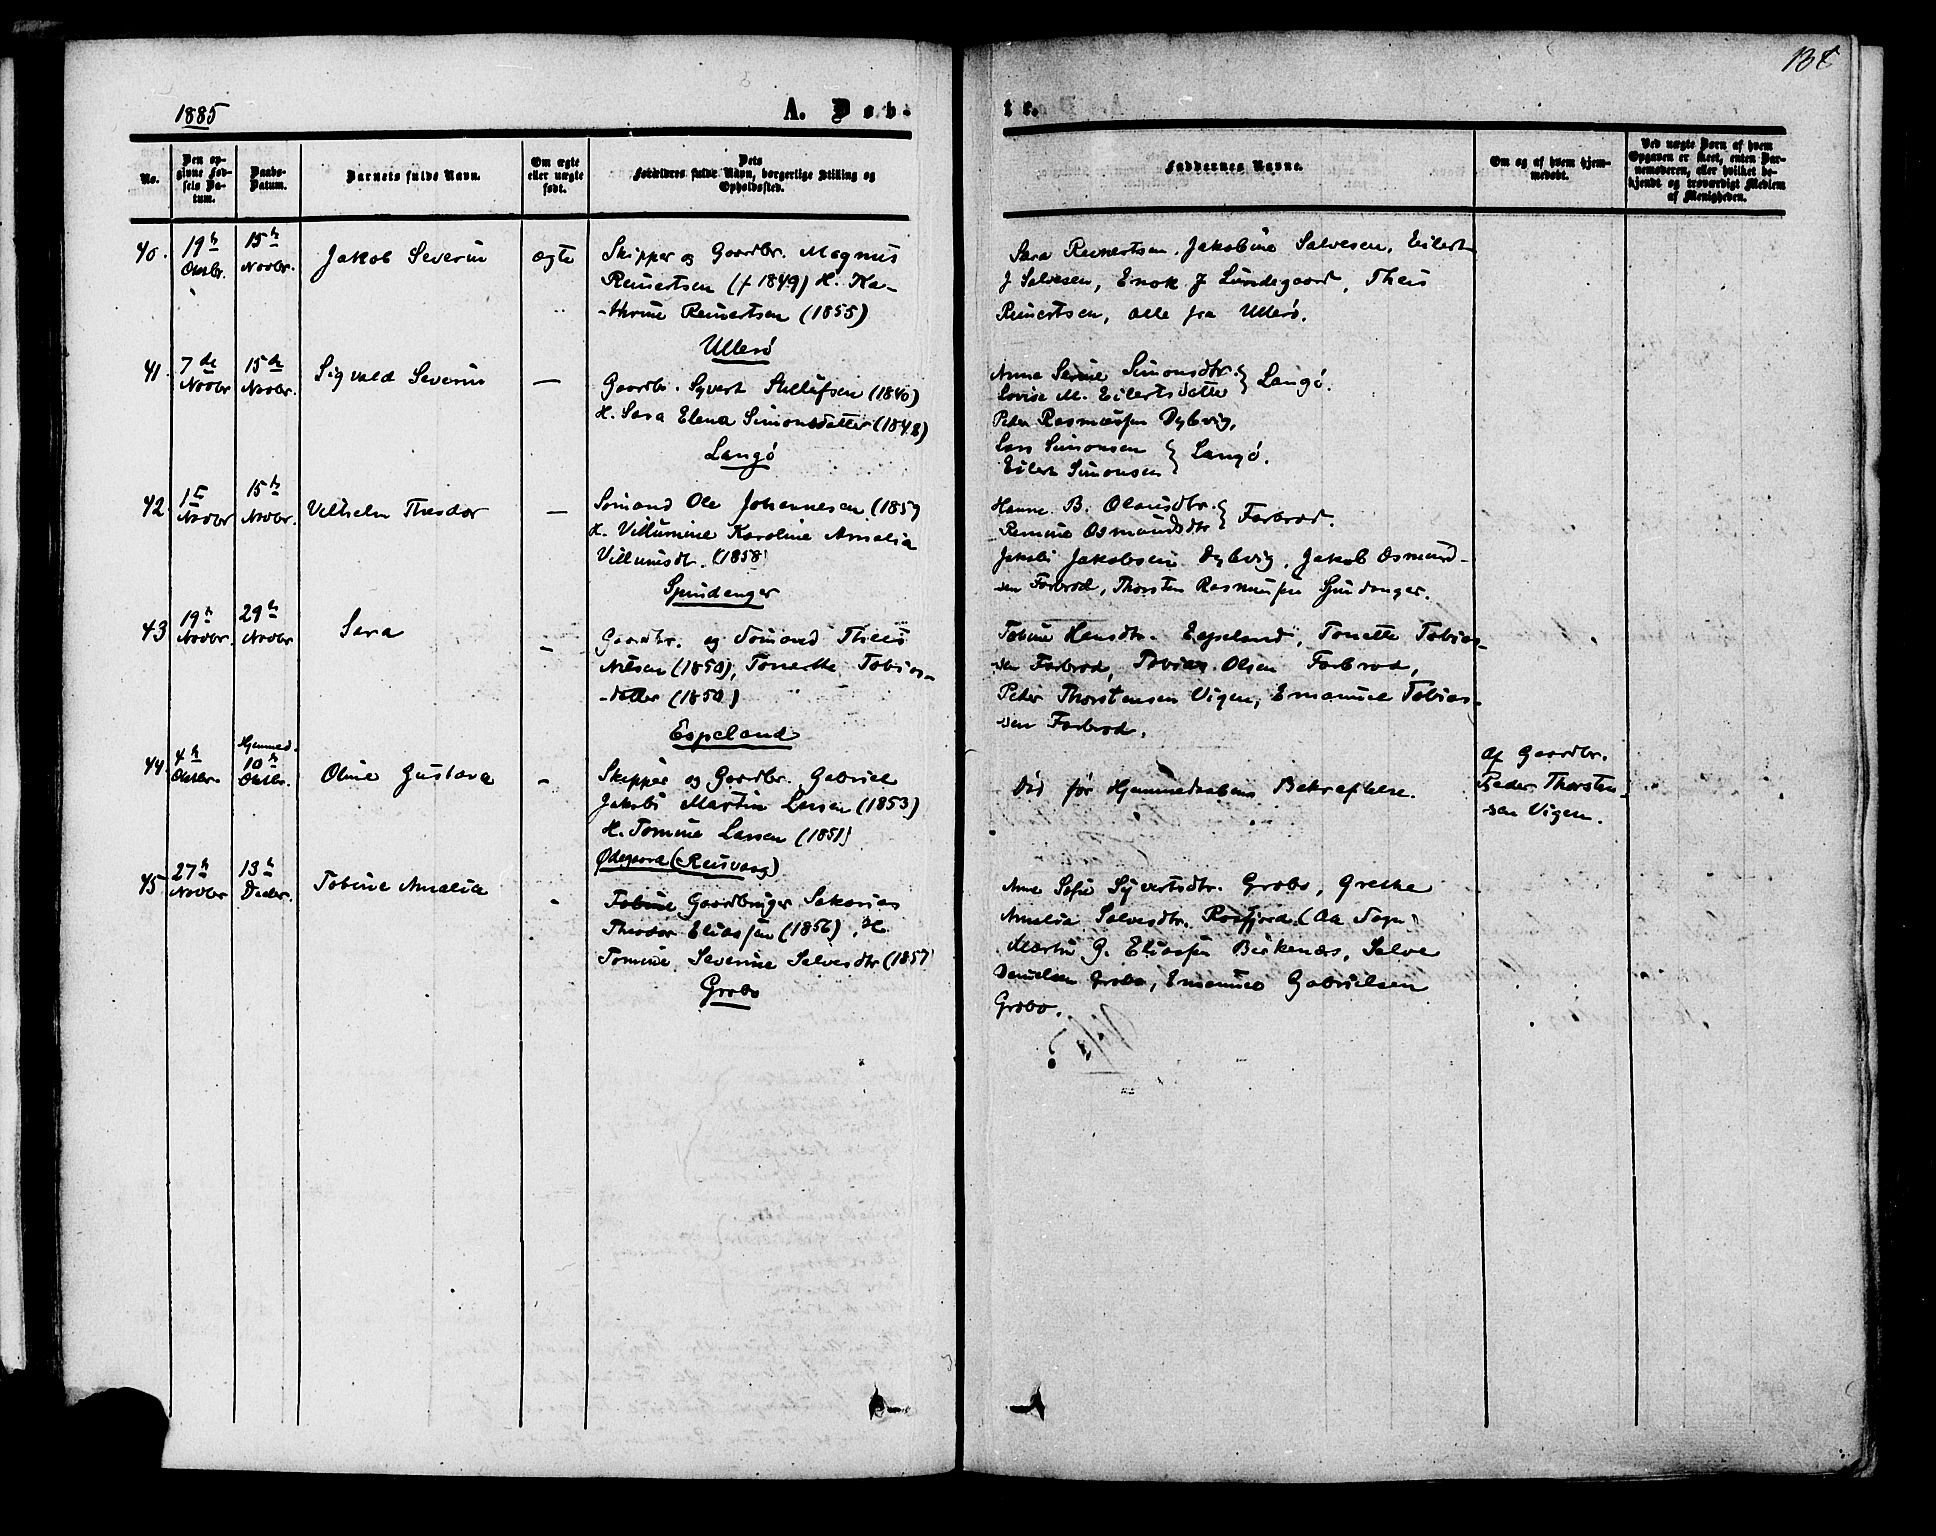 138
1885
A. Døb-
te.
No.
Den op-
givne Fød-
sels Da-
tum.
Daabs-
Datum.
Barnets fulde Navn.
Om ægte
eller uægte
født.
Dets
Forældres fulde Navn, borgerlige Stilling og
Opholdssted.
Faddernes Navne.
Om og af hvem hjem-
medøbt.
Ved uægte Børn af hvem
Opgaven er skeet, enten Bar-
nemoderen, eller hvilket be-
kjendt og troværdigt Medlem
af Menigheden.
40.
19
Oktbr.
15
Novbr.
Jakob Severin
ægte
Skipper og Gaardbr. Magnus
Reinertsen (f 1849) H. Ka-
-thrine Reinertsen (1855)
Ullerø
Sara Reinertsen, Jakobine Salvesen, Eilert
J Salvesen, Enok J Lundegaard, Theis
Reinertsen, alle fra Ullerø.
41
7de
Novbr
15de
Novbr.
Sigvald Severin
—
Gaardbr. Syvert Stellufsen (1840)
H. Sara Elena Simonsdatter (1848)
Langø
Anna Serine Simonsdtr. } Langø.
Lovise M. Eilertsdatter
Peder Rasmussen Dybvig,
Lars Simonsen } Langø.
Eilert Simonsen
42
1
Novbr
15
Novbr.
Vilhelm Theodor
—
Sømand Ole Johannesen (1857
H. Villumine Karoline Amalia
Villumsdtr. (1858)
Spindanger
Hanne B. Olausdtr. } Farbrod.
Remine Osmundsdtr
Jakob Jakobsen Dybvig, Jakob Osmund-
sen Farbrod, Thorsten Rasmussen Spindanger.
43
19
Novbr.
29
Novbr
Sara
-
Gaardbr. og Sømand Theis
Nilsen (1850), Tonette Tobias-
-datter (1850)
Espeland
Tobine Hansdtr. Espeland, Tonette Tobias-
sen Farbrod, Tobias Olsen Farbrod,
Peder Thorstensen Vigen, Emanuel Tobias-
sen Farbrod.
44.
4
Oktbr.
Hjemmed.
10
Oktbr.
Oline Gustava
-
Skipper og Gaardbr. Gabriel
Jakob Martin Larsen (1853)
H. Tomine Larsen (1851)
Ødegaard (Reisvaag)
Død før Hjemmedaabens Bekræftelse.
Af Gaardbr.
Peder Thorsten-
sen Vigen.
45.
27
Novbr
13
Decbr.
Tobine Amalia
-
Tobine Gaardbruger Sakarias
Theodor Eliassen (1856), H
Tomine Severine Salvesdtr (1857)
Grobo
Anne Sofie Syvertsdtr. Grobo, Grethe
Amalia Salvesdtr. Rosfjord (Aa Sogn)
Martin G. Eliassen Birkenæs, Salve
Danielsen Grobo, Emanuel Gabrielsen
Grobo.